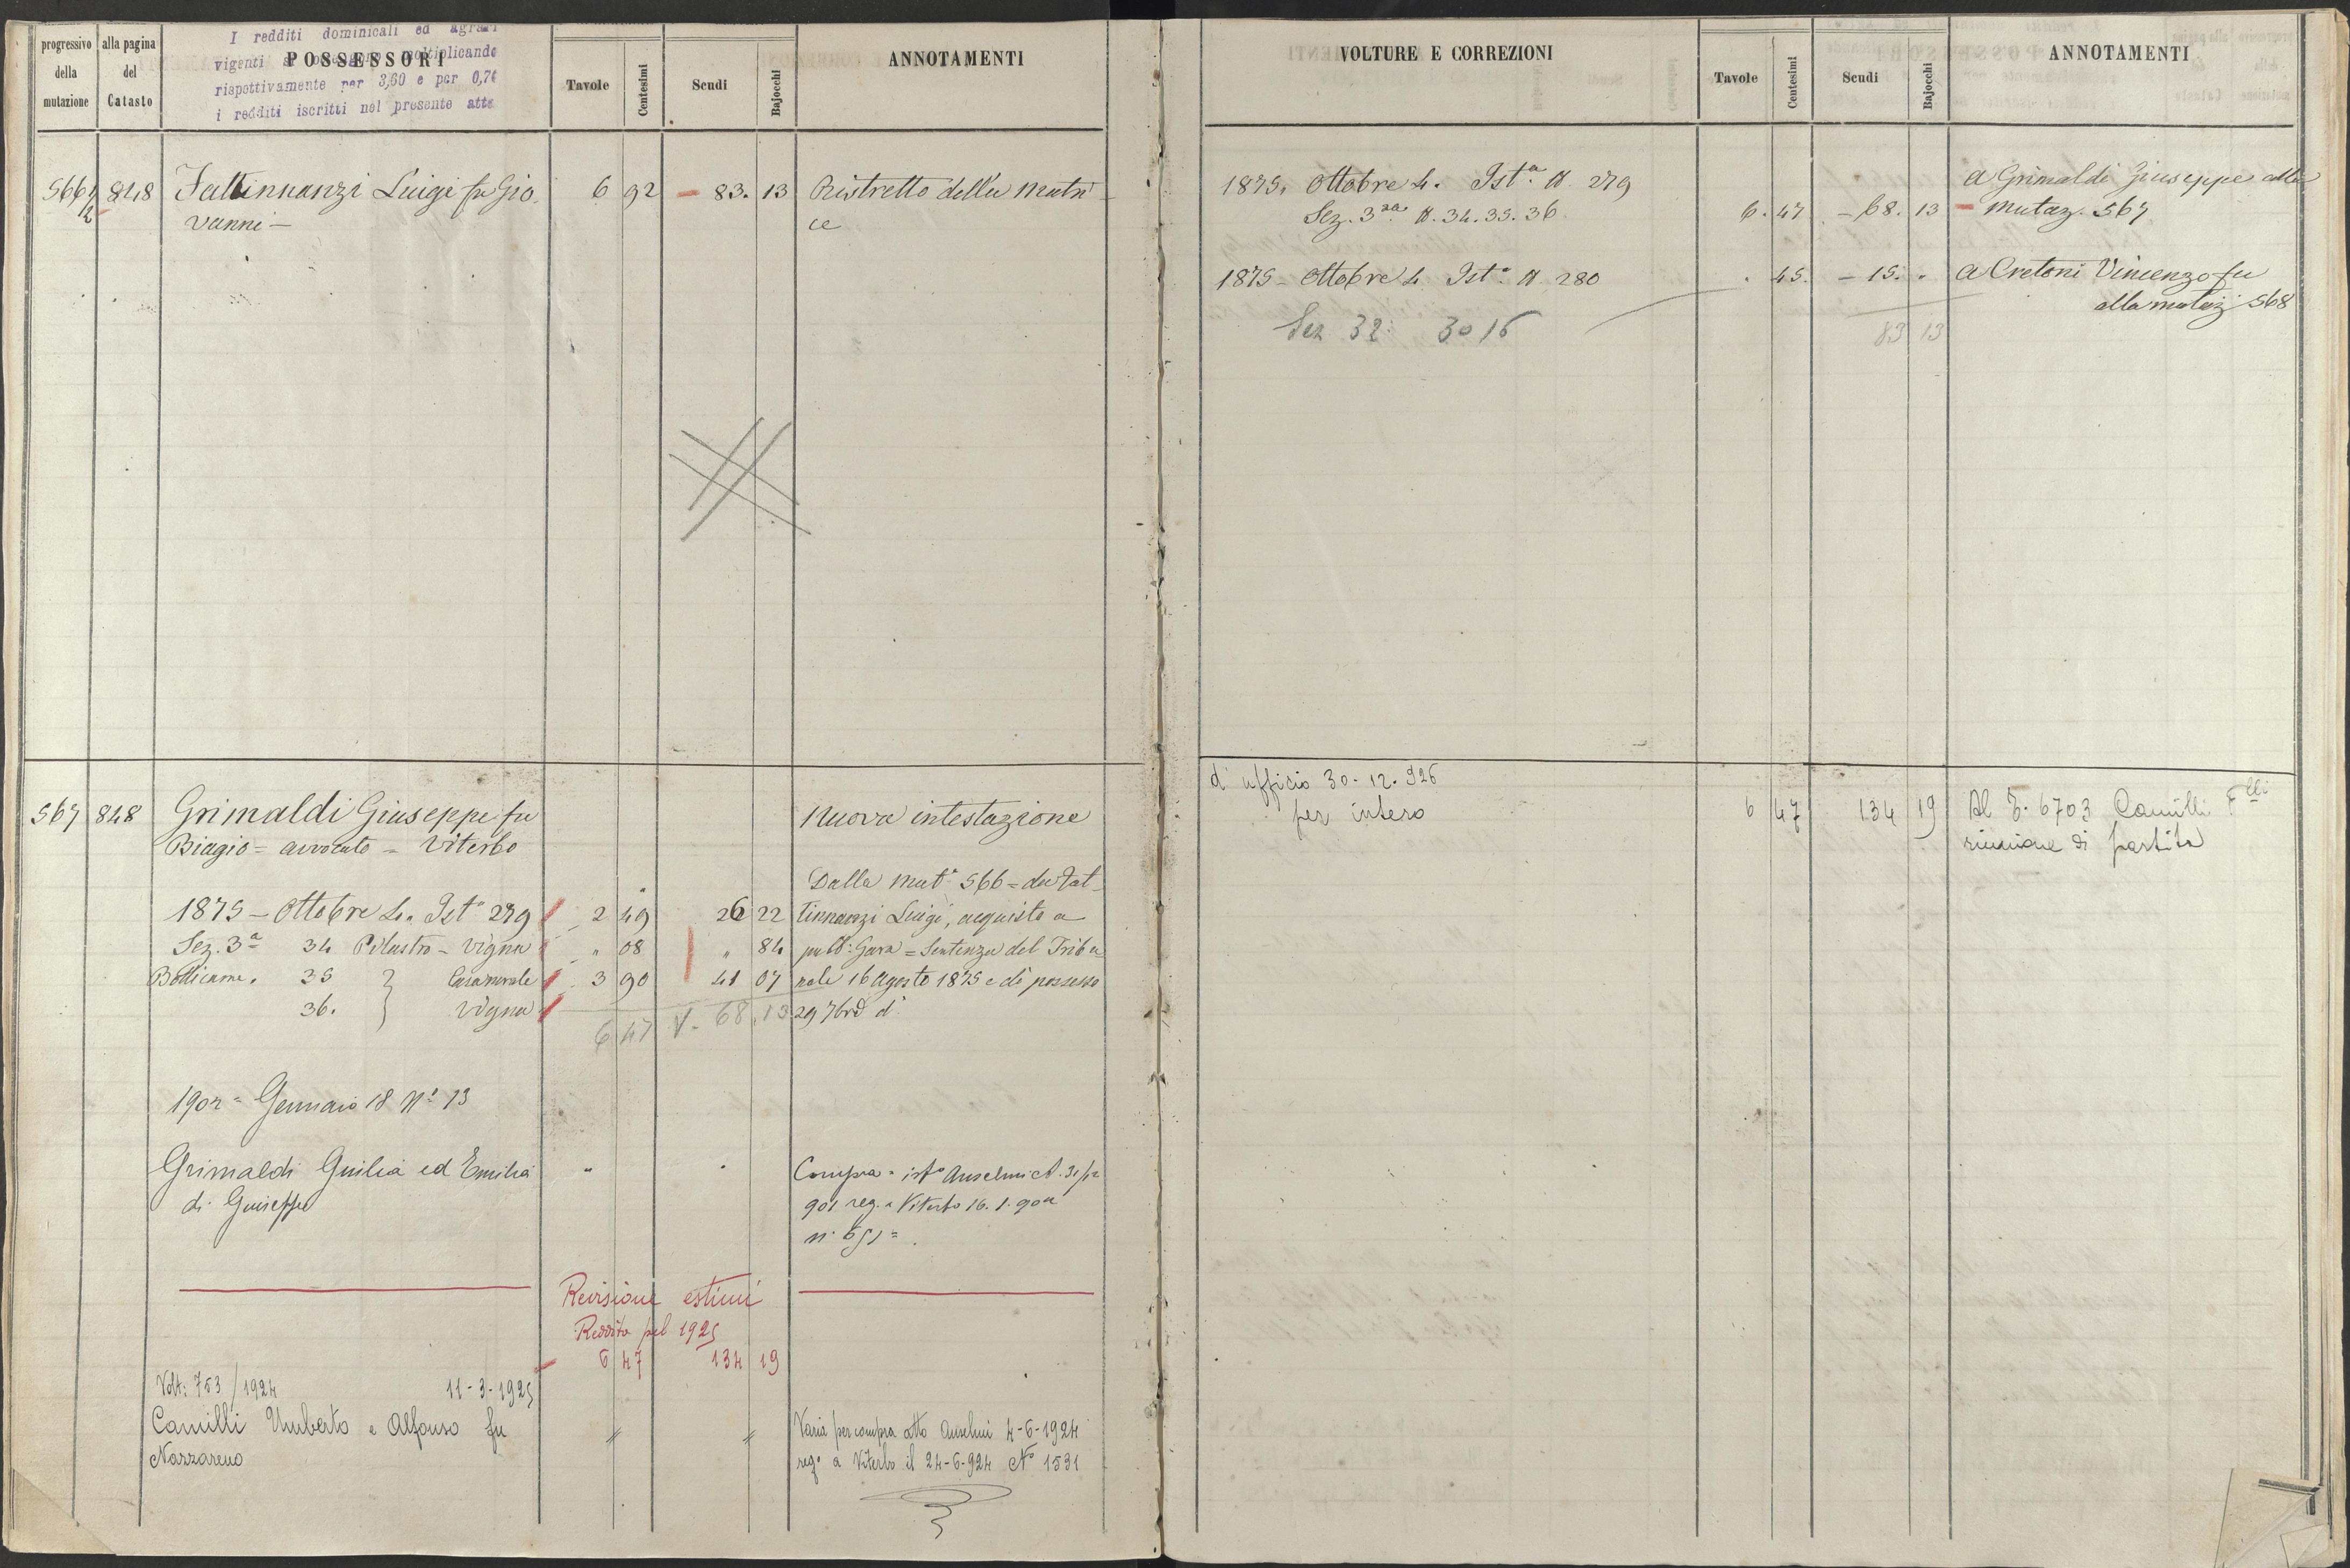 progressivo della mutazione
alla pagina del Catasto
POSSESSORI
I redditi dominicali ed agrari
vigenti si moltiplicando
rispettivamente per 3,60 e per 0,74
i redditi iscritti nel presente atto
Tavole
Centesimi
Scudi
Bajocchi
ANNOTAMENTI
566 1/2 848 Fattinnanzi Luigi fu Gio 6 92 83. 13 Ristretto della matri
vanni ce
567 848 Grimaldi Giuseppe fu nuova intestazione
Biagio = avvocato = Viterbo
Dalla mut.ª 566 = da Fat
1875 - Ottobre 4. Ist.ª 279 2 49 26 22 tinnanzi Luigi, acquisto a
Sez. 3ª 34 Pilastro - Vigna " 08 " 84 pubb: Gara = Sentenza del Tribu
Bullicame. 35 } Casa rurale 3 90 41 07 nale 16 Agosto 1875 e di possesso
36. } Vigna 29 7bre d.º
6 47 V. 68.13
1902 = Gennaio 18 N.º 13
Grimaldi Giulia ed Emilia " " Compra = ist.º Anselmi A. 31/12
di Giuseppe 901 reg. a Viterbo 16.1.902
Revisione estimi
Reddito pel 1925
6 47 134 19
Volt: 753/1924 11-3-1925
Camilli Umberto e Alfonso fu // // Varia per compra atto Anselmi 4-6-1924
Nazzareno reg.º a Viterbo il 24-6-924 N.º 1531
VOLTURE E CORREZIONI
Tavole
Centesimi
Scudi
Bajocchi
ANNOTAMENTI
1875. Ottobre 4. Ist.ª N. 279 a Grimaldi Giuseppe alla
Sez. 3.za N. 34. 35. 36 6. 47 - 68. 13 mutaz. 567
1875 - Ottobre 4 Ist.ª N. 280 . 45. - 15. " a Cretoni Vincenzo fu
alla mutaz 568
Sez 32: 30 16 83 13
d'ufficio 30-12-926
per intero 6 47 134 19 Al 6703 Camilli F.lli
riunione di partita